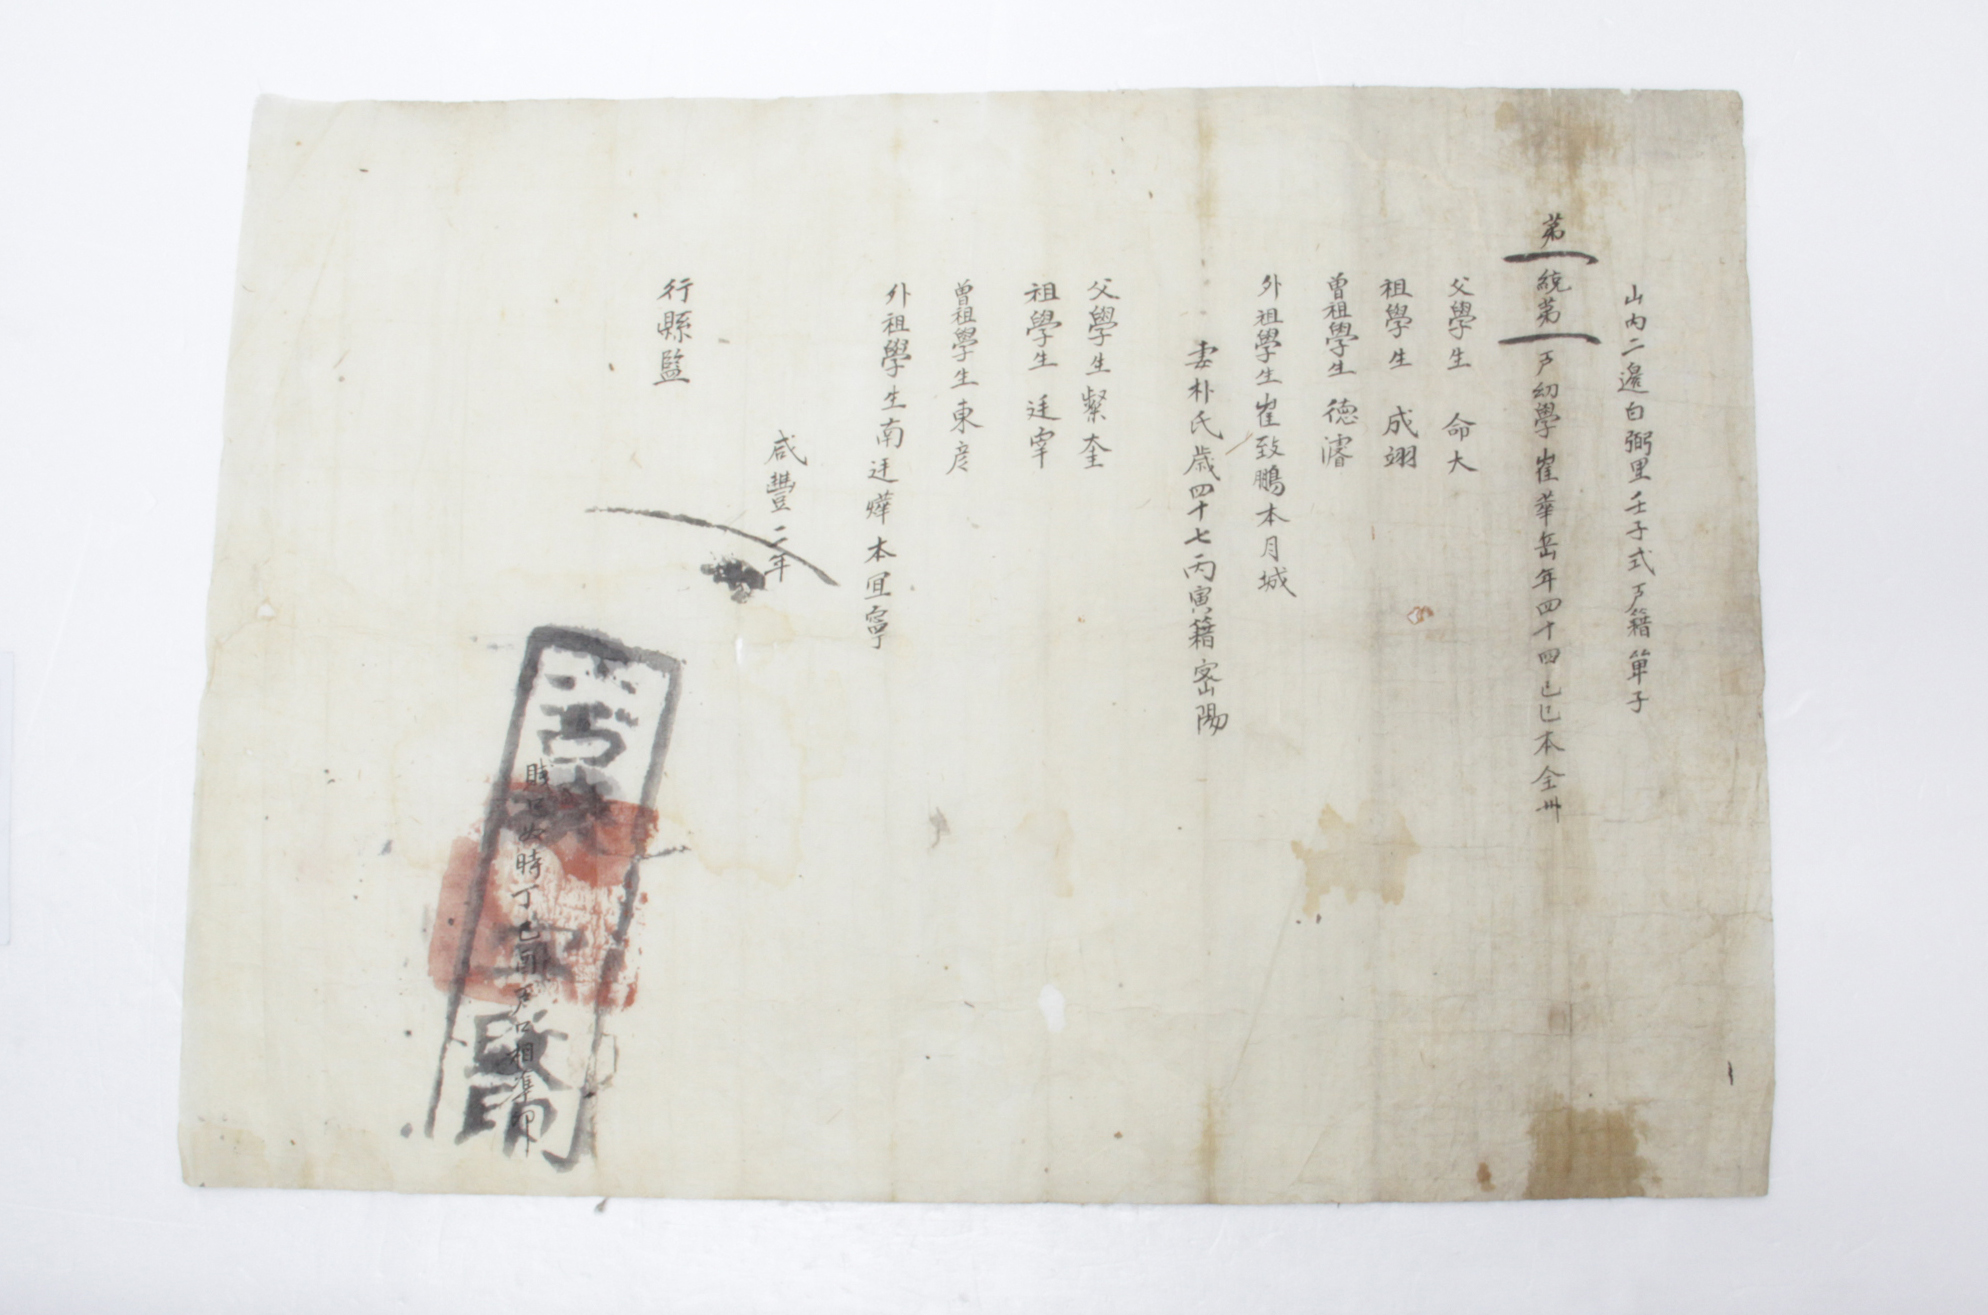 山内二邊白弼里壬子式户籍單子
苐一統苐一户幼學崔華岳年四十四己巳本全州
父學生 命大
祖學生 成翊
曽祖學生德濬
外祖學生崔致鵬本月城
妻朴氏歲四十七丙寅籍密陽
父學生粲奎
祖學生廷宰
曽祖學生東彦
外祖學生南廷燁本宜寧
咸豐二年
行縣監
時丁己酉户口相凖印